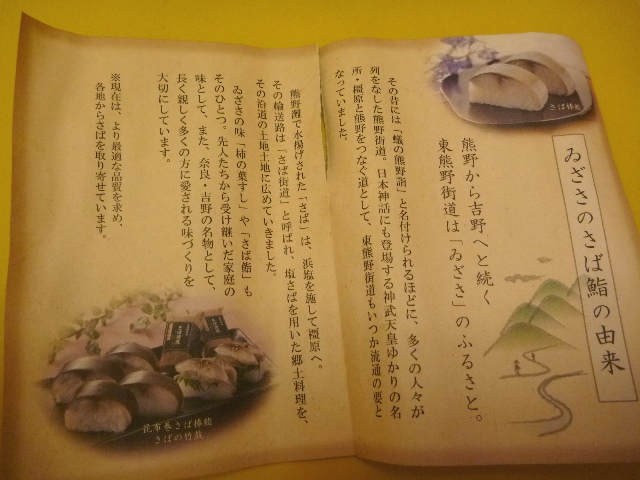 ゐざさのさば鮨の由来
熊野から吉野へと続く
東熊野街道は「ゐざさ」のふるさと。
さば棒鮨
その昔には「蟻の熊野詣」と名付けられるほどに、多くの人々が
列をなした熊野街道。日本神話にも登場する神武天皇ゆかりの名
所・橿原と熊野をつなぐ道として、東熊野街道もいつか流通の要と
なっていました。
熊野灘で水揚げされた「さば」は、浜塩を施して橿原へ。
その輸送路は「さば街道」と呼ばれ、塩さばを用いた郷土料理を、
その沿道の土地土地に広めていきました。
ゐざさの味「柿の葉すし」や「さば鮨」も
そのひとつ。先人たちから受け継いだ家庭の
味として、また、奈良・吉野の名物として、
長く親しく多くの方に愛される味づくりを
大切にしています。
※現在は、より最適な品質を求め、
各地からさばを取り寄せています。
昆布巻さば棒鮨
さばの竹皷